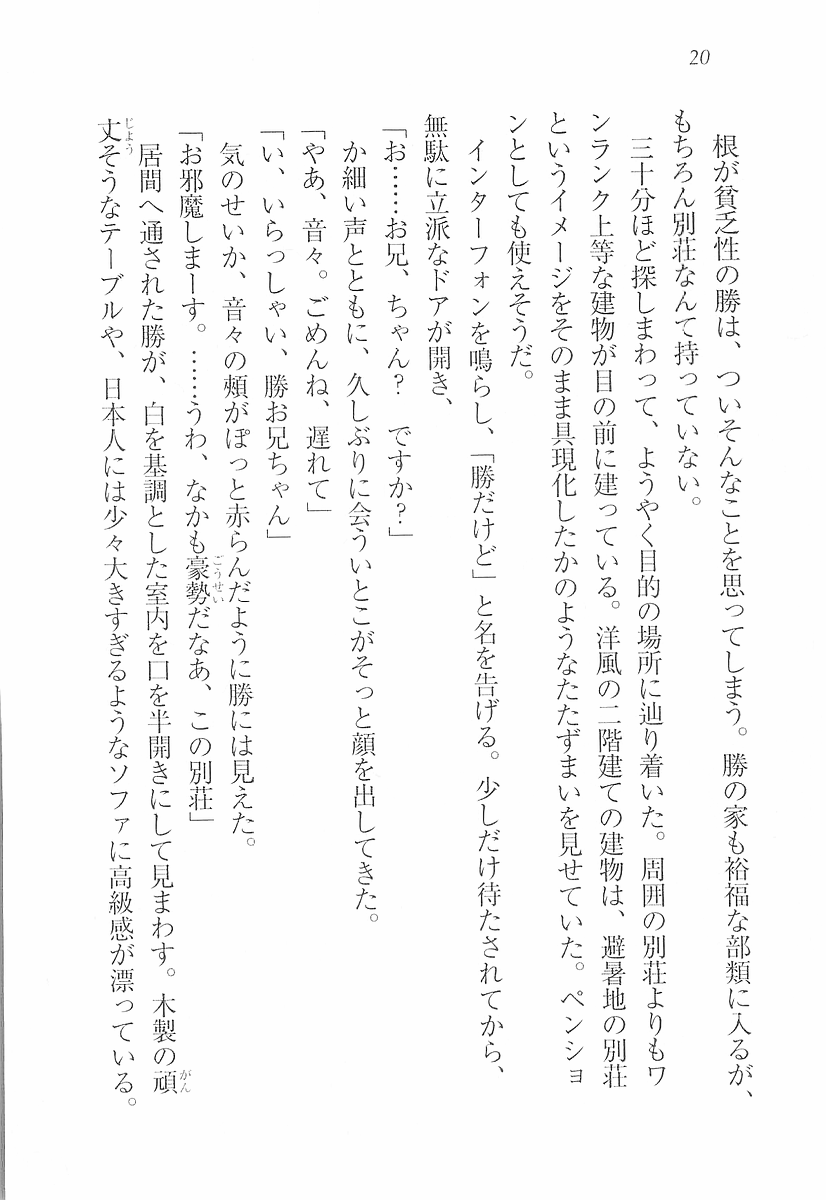 20
根が貧乏性の勝は、ついそんなことを思ってしまう。勝の家も裕福な部類に入るが、
もちろん別荘なんて持っていない。
三十分ほど探しまわって、ようやく目的の場所に辿り着いた。周囲の別荘よりもワ
ンランク上等な建物が目の前に建っている。洋風の二階建ての建物は、避暑地の別荘
というイメージをそのまま具現化したかのようなたたずまいを見せていた。ペンショ
ンとしても使えそうだ。
インターフォンを鳴らし、「勝だけど」と名を告げる。少しだけ待たされてから、
無駄に立派なドアが開き、
「お……お兄、ちゃん？　ですか？」
か細い声とともに、久しぶりに会ういとこがそっと顔を出してきた。
「やあ、音々。ごめんね、遅れて」
「い、いらっしゃい、勝お兄ちゃん」
気のせいか、音々の頰がぽっと赤らんだように勝には見えた。
「お邪魔しまーす。……うわ、なかも豪勢だなあ、この別荘」
ごうせい
居間へ通された勝が、白を基調とした室内を口を半開きにして見まわす。木製の頑
がん
丈そうなテーブルや、日本人には少々大きすぎるようなソファに高級感が漂っている。
じょう